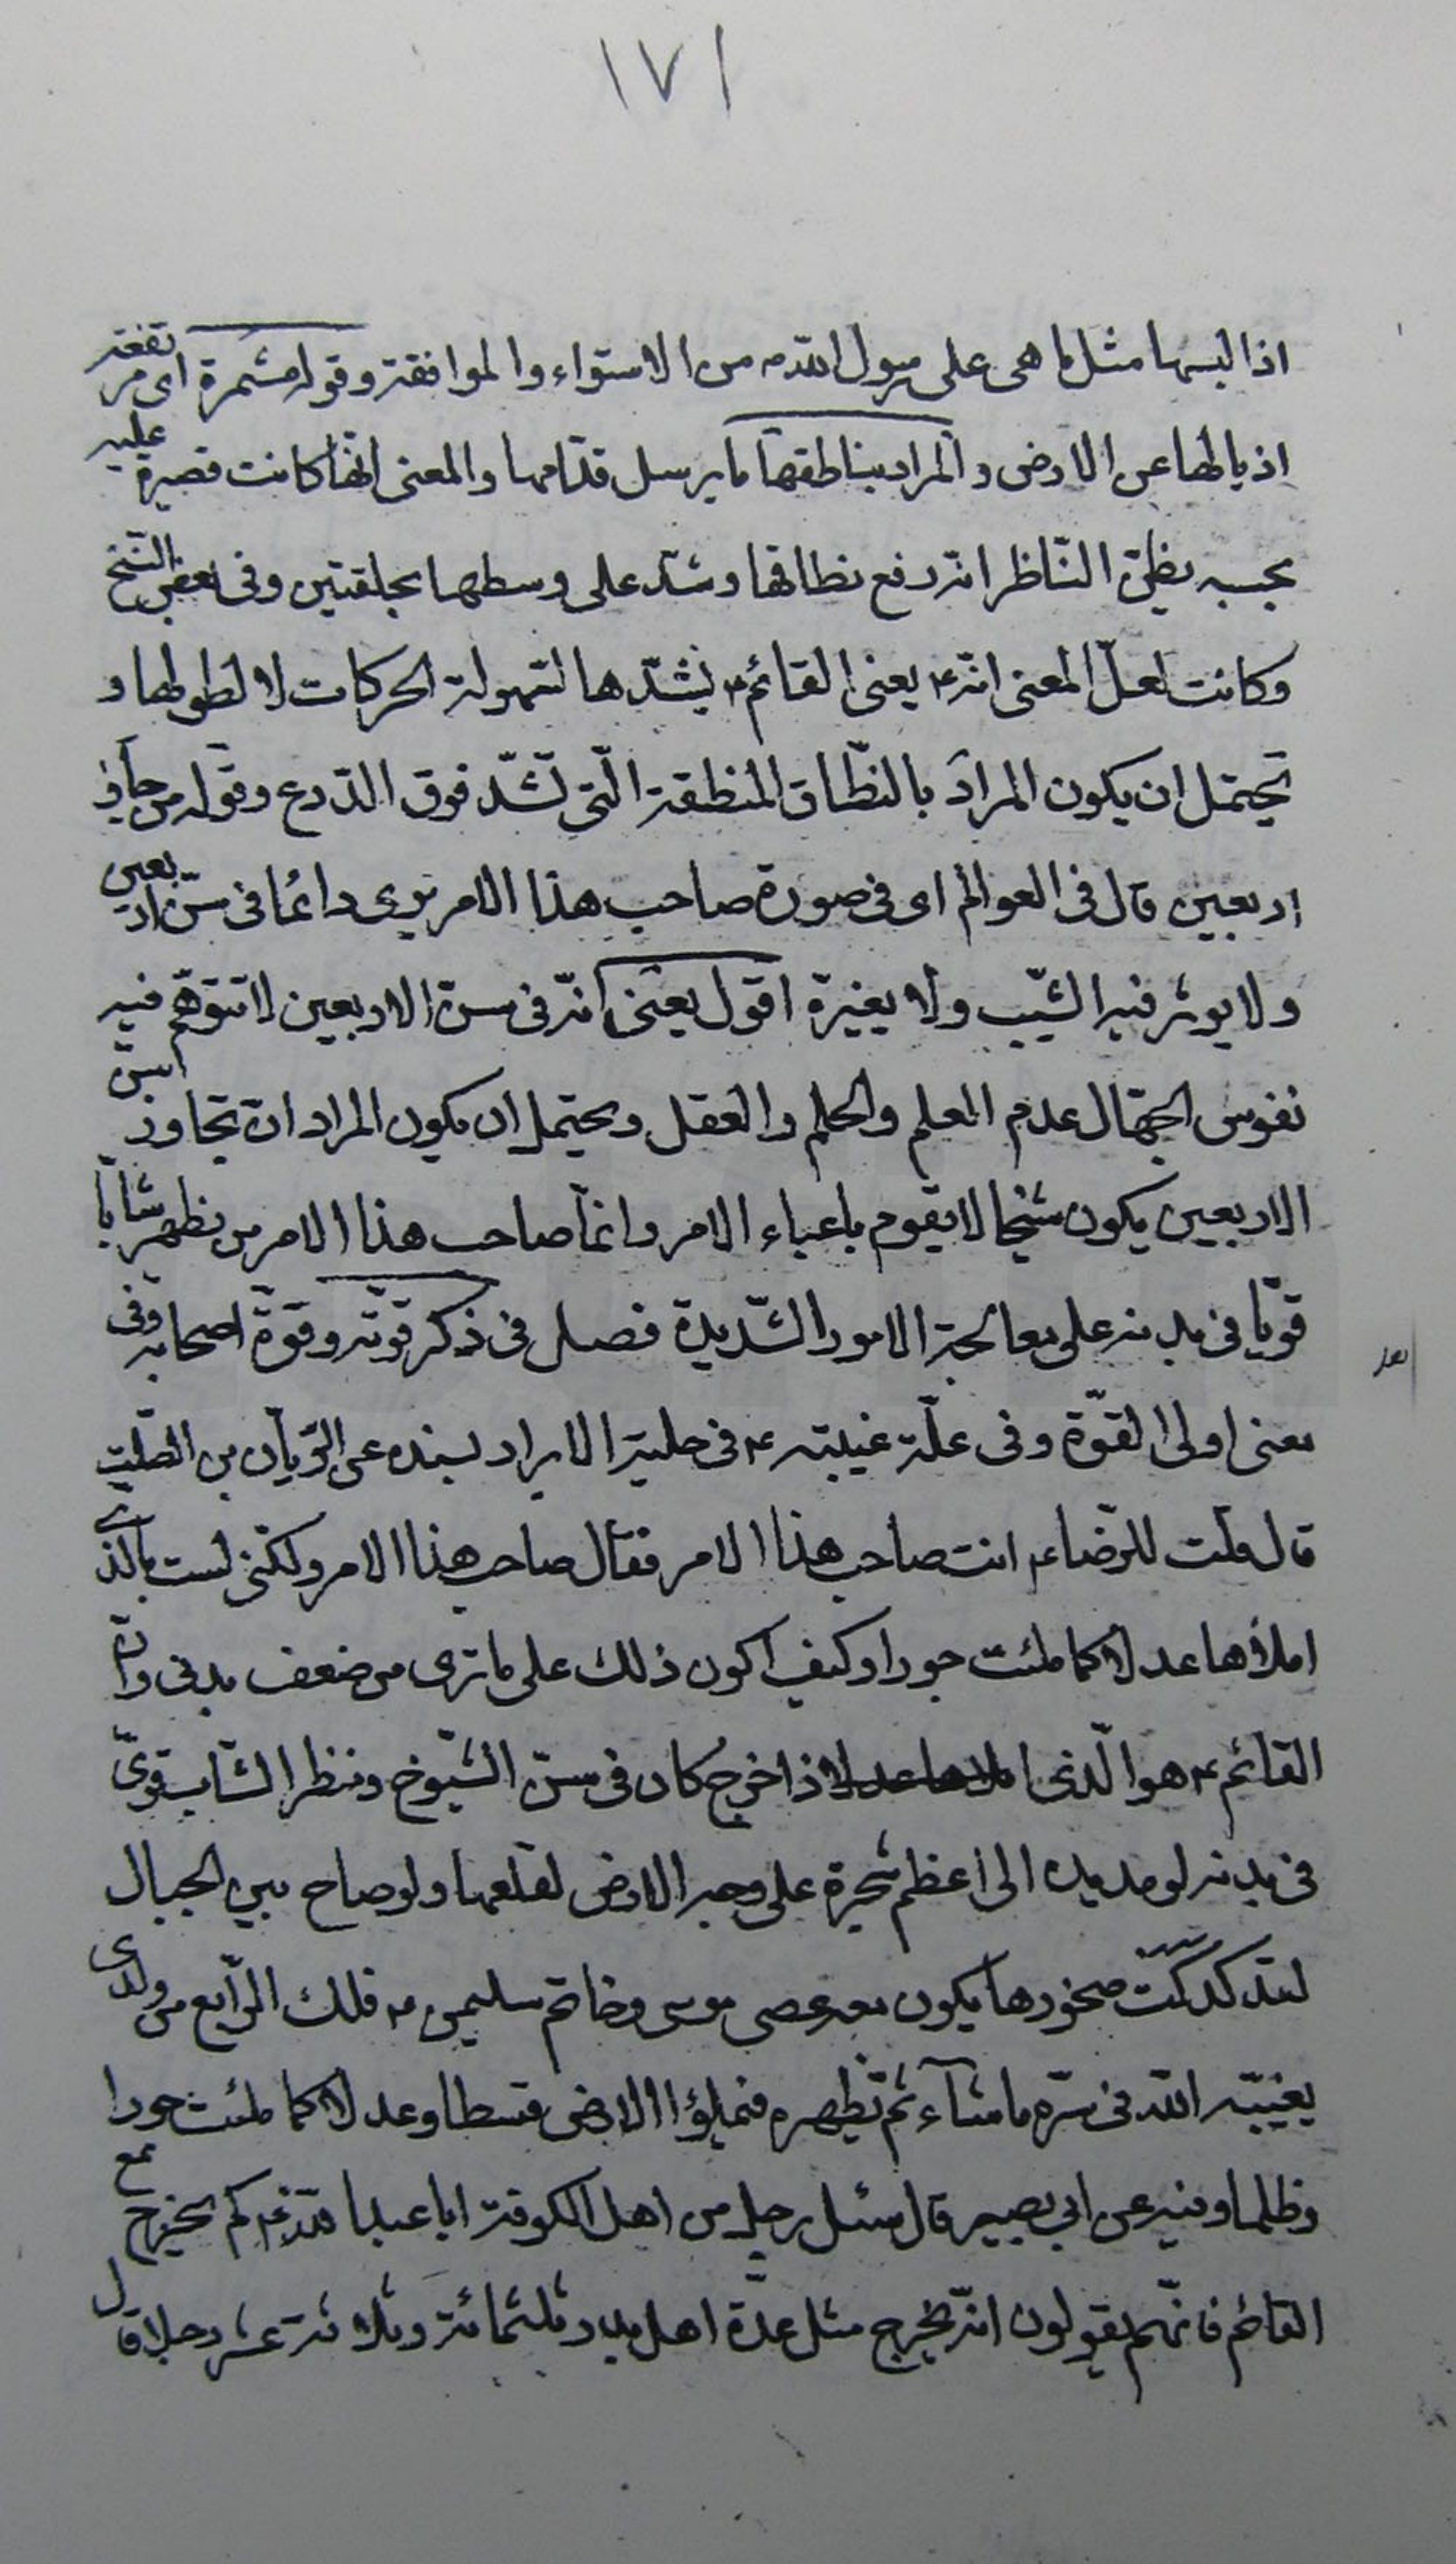 ١٧١
اذا لبسها مثل ما هى على رسول الله ص من الاستواء والموافقة وقوله مشمرة اى مرتفعة
اذيالها عن الارض والمراد بنا طقها ما يرسل قدامها والمعنى انها كانت قصيرة عليه
بحسبه يظن الناظر انه رفع نطاقها وشد على وسطها بحلقتين وفى بعض النسخ
وكانت لعل المعنى انه ع يعنى القائم ع يشدها لسهولة الحركات لا لطولها و
يحتمل ان يكون المراد بالنطاق المنطقة التى تشد فوق الدرع وقوله من جاز
اربعين قال فى العوالم اى فى صورة صاحب هذا الامر يرى دائما فى سن اربعين
ولا يوثر فيه الشيب ولا يغيرة اقول يعنى انه فى سن الاربعين لا تتوهم فيه
نفوس الجهال عدم العلم والحلم والعقل ويحتمل ان يكون المراد ان تجاوز السن
الاربعين يكون شيخا لا يقوم باعباء الامر وانما صاحب هذا الامر من يظهر شابا
قويا فى بدنه على معالجة الامور الشديدة فصل فى ذكر قوته وقوة اصحابه وفى
معنى اولى القوة وفى علة غيبته ع فى حلية الابرار بسنده عن الريان بن الصلت
قال قلت للرضاء ع انت صاحب هذا الامر فقال صاحب هذا الامر ولكنى لست بالذى
املأها عدلا كما ملئت جورا وكيف اكون ذلك على ما ترى من ضعف بدنى وان
القائم ع هو الذى اذا خرج كان فى سن الشيوخ ومنظر الشاب قوى
فى بدنه لو مد يده الى اعظم شجرة على وجه الارض لقلعها ولو صاح بين الجبال
لتدكدكت صخورها يكون معه عصى موسى وخاتم سليمن ع ذلك الرابع من ولدى
يغيبه الله فى ستره ما شاء ثم يظهره فيملؤا الارض قسطا وعدلا كما ملئت جورا
وظلما وفيه عن ابي بصير قال سئل رجل من اهل الكوفة ابا عبد الله ع كم يخرج مع
القائم فانهم يقولون انه يخرج مثل عدة اهل بدر ثلثمائة وثلاثة عشر رجلا قال